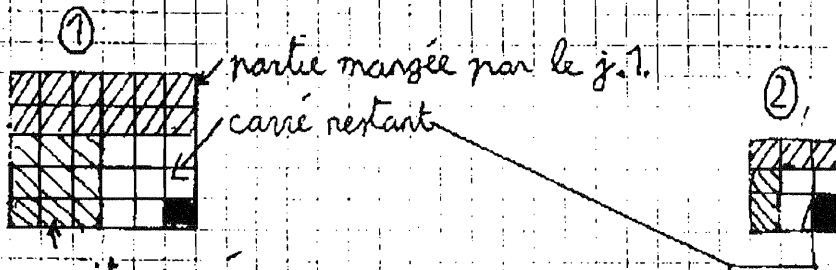 ①
partie mangée par le j.1.
②
carré restant